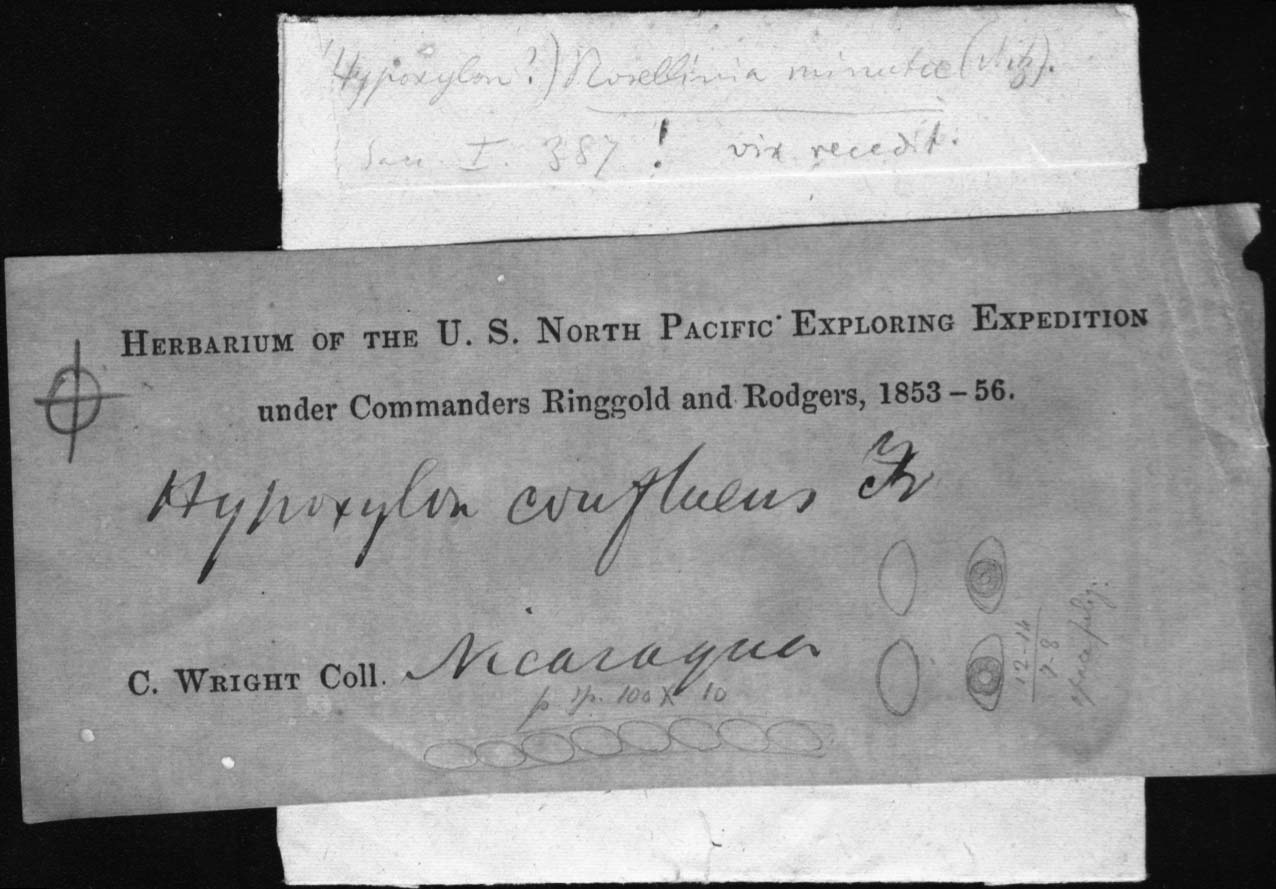 Hypoxylon?) Rosellinia minuta (Nitz).
Sacc. I. 387 ! vix recedit.
HERBARIUM OF THE U. S. NORTH PACIFIC EXPLORING EXPEDITION
under Commanders Ringgold and Rodgers, 1853–56.
Hypoxylon confluens Fr
C. WRIGHT Coll. Nicaragua
p. sp. 100 X 10
12-14
7-8